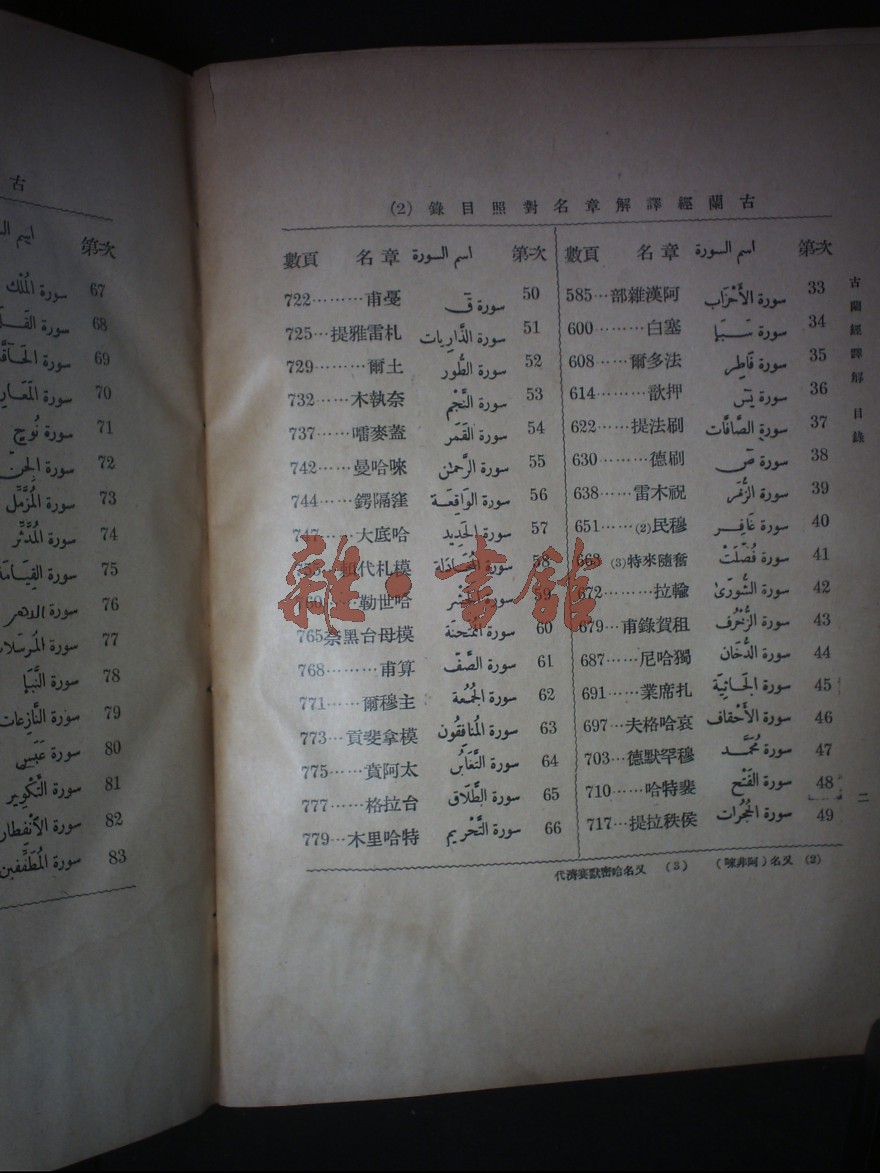 古蘭經譯解章名對照目錄 (2)
第次 اسم السورة 章名 頁數
33 سورة الأَحْزَاب 阿漢雜部…585
34 سورة سَبَا 塞白………600
35 سورة فَاطِر 法多爾……608
36 سورة يس 押歆………614
37 سورة الصَّافَّات 刷法提……622
38 سورة ص 刷德………630
39 سورة الزُّمَر 祝木雷……638
40 سورة غَافِر 穆民(2)……651
41 سورة فُصِّلَتْ 奮隨來特(3)
42 سورة الشُّورَىٰ 輸拉……672
43 سورة الزُّخْرُف 租賀錄甫…679
44 سورة الدُّخَان 獨哈尼……687
45 سورة الجَاثِيَة 扎席業……691
46 سورة الأَحْقَاف 哀哈格夫…697
47 سورة مُحَمَّد 穆罕默德…703
48 سورة الفَتْح 裴特哈……710
49 سورة الحُجُرات 侯秩拉提…717
第次 اسم السورة 章名 頁數
50 سورة ق 戞甫………722
51 سورة الذَّاريات 札雷雅提…725
52 سورة الطُّور 土爾………729
53 سورة النَّجْم 奈執木……732
54 سورة القَمَر 蓋麥嚅……737
55 سورة الرَّحمٰن 唻哈曼……742
56 سورة الوَاقِعَة 窪隔鍔……744
57 سورة الحَدِيد 哈底大……747
58 سورة المُجَادَلة 模札代
59 سورة 哈世勒……760
60 سورة المُمْتَحَنَة 模母台黑柰765
61 سورة الصَّفّ 算甫………768
62 سورة الجُمُعَة 主穆爾……771
63 سورة المُنافِقُون 模拿斐貢…773
64 سورة التَّغَابُن 太阿賁……775
65 سورة الطَّلَاق 台拉格……777
66 سورة التَّحْرِيم 特哈里木…779
(2) 又名(阿非) (3) 又名哈密獃葉濟代
古蘭經譯解 目錄
二
古
第次 اسم
67 سورة المُلْك
68 سورة
69 سورة
70 سورة
71 سورة نُوح
72 سورة الجِنّ
73 سورة المُزَّمِّل
74 سورة المُدَّثِّر
75 سورة القِيَامَة
76 سورة الدهر
77 سورة المُرسَلات
78 سورة النَّبَإ
79 سورة النَّازِعَات
80 سورة عَبَسَ
81 سورة التَّكْوِير
82 سورة الأنْفِطار
83 سورة المُطَفِّفِين
雜·書館